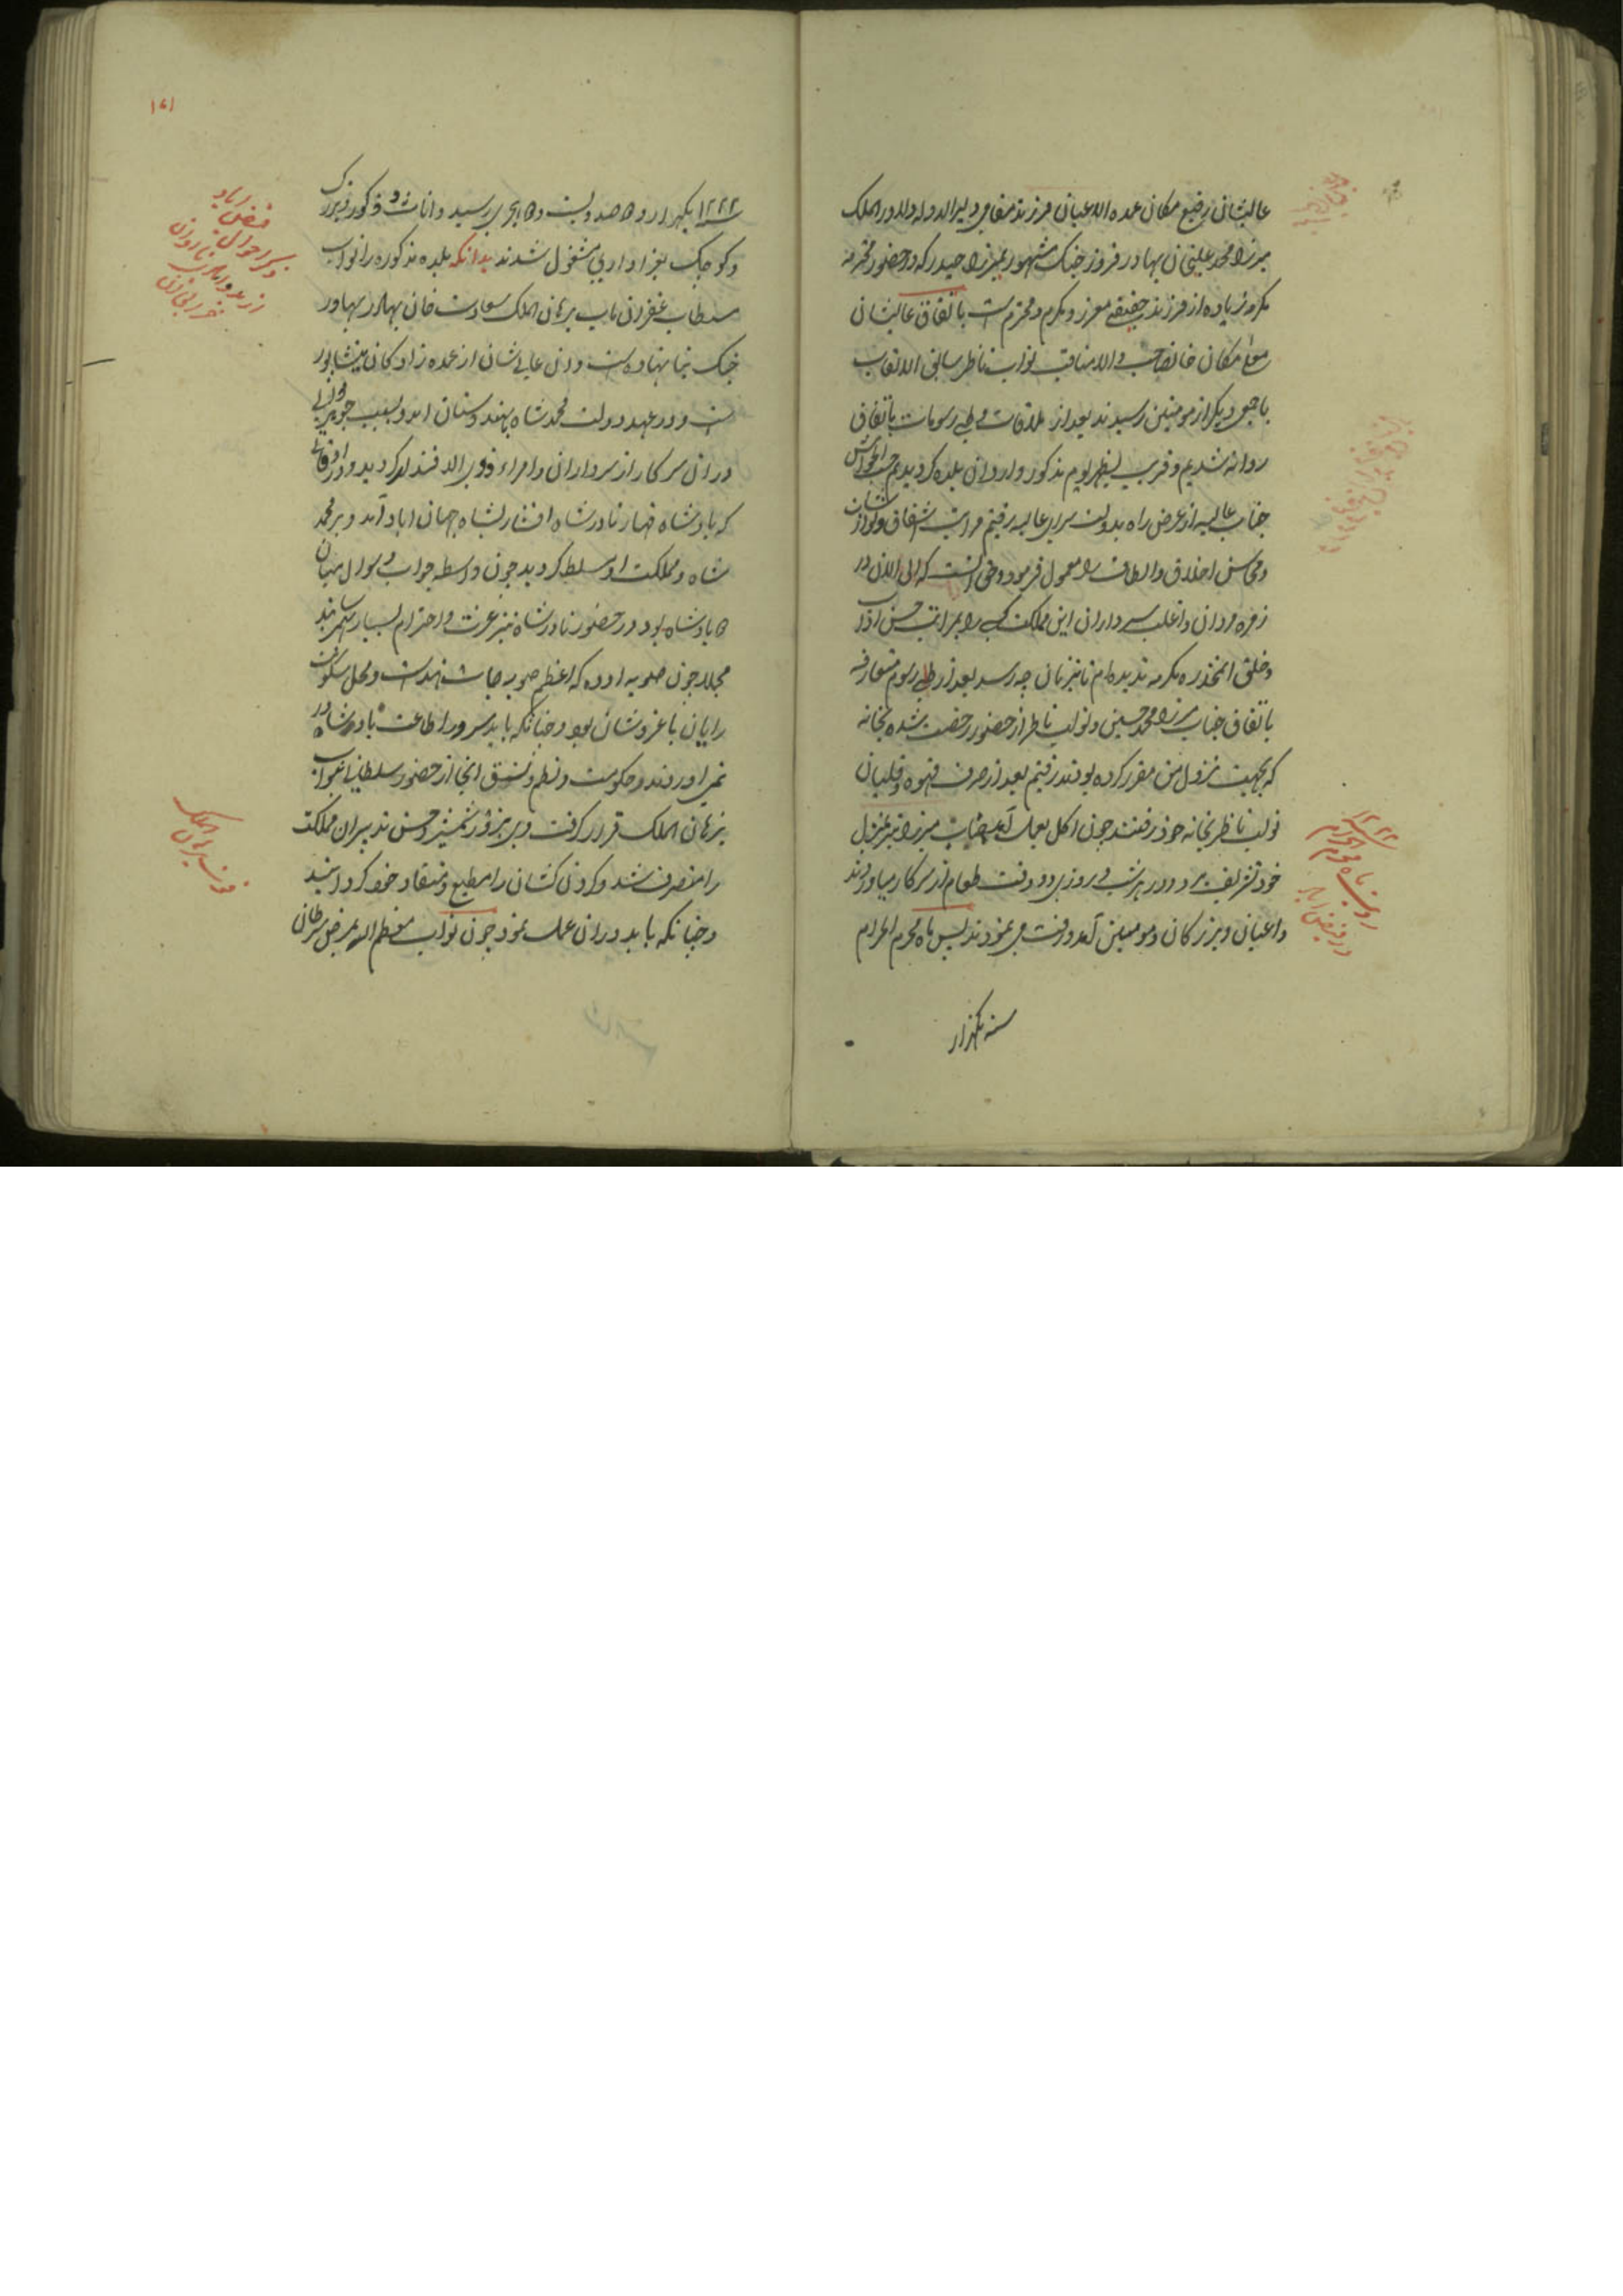 عالیشان رفیع مکان عمده الاعیان فرزند مقامی دلیر الدوله دلاور الملک
میرزا محمد علیخان بهادر فیروز جنک مشهور بمیرزا حیدر که در حضور محترمه
مکرمه زیاده از فرزند حقیقی معزز و مکرم و محترم است باتفاق عالیشان
معلی مکان خانصاحب والا مناقب نواب ناظر سابق الالقاب
با جمعی دیکر از مومنین رسیدند بعد از ملاقات و طی رسومات باتفاق
روانه شدیم و قریب بظهر یوم مذکور وارد ان بلده کردیدیم حسب الخواهش
جناب عالیه از عرض راه بدولت سرای عالیه رفتیم مراتب اشفاق و نوازشات
و محاسن اخلاق و الطاف را معمول فرمود و حق انست که الی الان در
زمره مردان و اغلب سرداران این مملکت کسی را بمراتب حسن اداب
و خلق انمخدره مکرمه ندیده ام تا بزنان چه رسد بعد از طی رسوم متعارفه
باتفاق جناب میرزا محمد حسین و نواب ناظر از حضور رخصت شده بخانه
که بجهت نزول من مقرر کرده بودند رفتیم بعد از صرف قهوه و قلیان
نواب ناظر بخانه خود رفتند چون اکل بعمل آمد جناب میرزا نیز بمنزل
خود تشریف برد و در هر شب و روزی دو وقت طعام از سرکار میاوردند
و اعیان و بزرکان و مومنین آمد و رفت می نمودند پس ماه محرم الحرام
سنه یکهزار
۱۲۲۲
رویت ماه محرم الحرام
در فیض اباد
۱۶۱
۱۲۲۲ یکهزار و دو صد و بیست و دو هجری رسید و اناث و ذکور و بزرک
و کوچک بعزاداری مشغول شدند بدانکه بلده مذکوره را نواب
مستطاب غفران ماب برهان الملک سعادت خان بهادر بهادر
جنک بنا نهاده است و ان عالیشان از عمده زادکان نیشابور
است و در عهد دولت محمد شاه بهندوستان امد و بسبب جوهر ذاتی
در ان سرکار از سرداران و امراء ذوی الاقتدار کردید و در اوقاتی
که پادشاه قهار نادر شاه افشار بشاه جهان اباد آمد و بر محمد
شاه و مملکت او مسلط کردید چون واسطه جواب و سوال میان
دو پادشاه بود در حضور نادر شاه نیز عزت و احترام بسیار بهم رسانید
مجملا چون صوبه اوده که اعظم صوبه جات هندست و محل سکونت
رایان با عز و شان بود و چنانکه باید سر در اطاعت پادشاه
نمی اوردند و حکومت و نظم و نسق انجا از حضور سلطانی بنواب
برهان الملک قرار کرفت وی بزور شمشیر و حسن تدبیر ان مملکت
را متصرف شد و کردن کشان را مطیع و منقاد خود کردانید
و چنانکه باید در ان عمل نمود چون نواب معظم الیه بمرض سرطان
فیض اباد
ذکر احوال
فوت برهان الملک